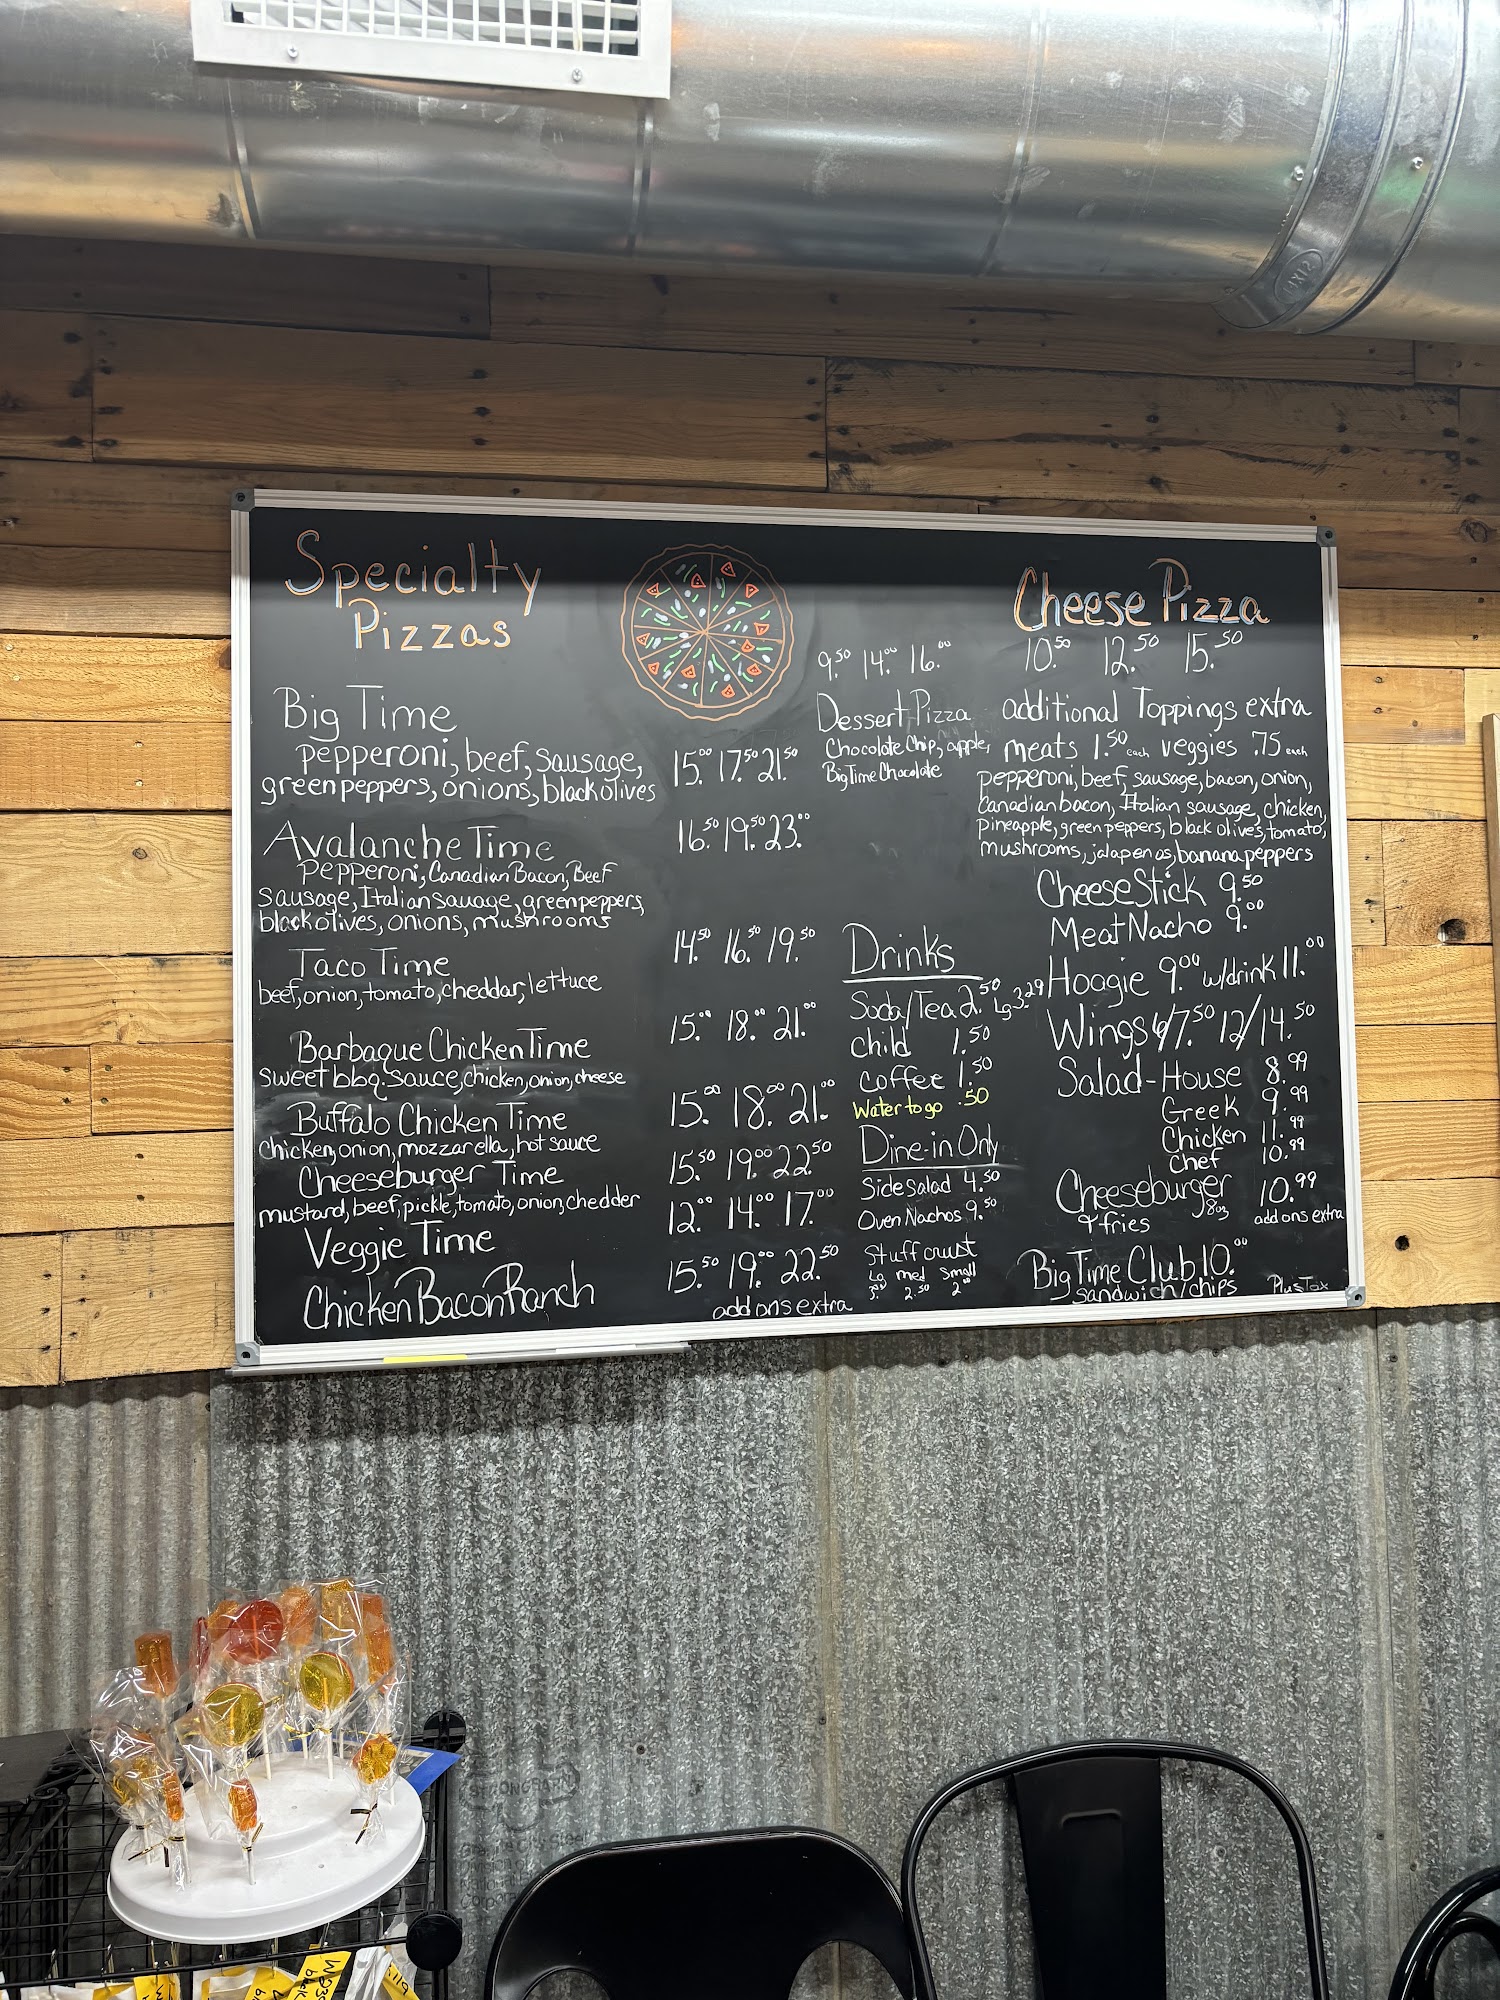 Specialty
Pizzas
Big Time
pepperoni, beef, sausage,
green peppers, onions, black olives
15.00 17.50 21.50
Avalanche Time
Pepperoni, Canadian Bacon, Beef
sausage, Italian sauage, green peppers,
black olives, onions, mushrooms
16.50 19.50 23.00
Taco Time
beef, onion, tomato, cheddar, lettuce
14.50 16.50 19.50
Barbaque Chicken Time
sweet bbq. sauce, chicken, onion, cheese
15.00 18.00 21.00
Buffalo Chicken Time
chicken, onion, mozzarella, hot sauce
15.00 18.00 21.00
Cheeseburger Time
mustard, beef, pickle, tomato, onion, chedder
15.50 19.00 22.50
Veggie Time
12.00 14.00 17.00
Chicken Bacon Ranch
15.50 19.00 22.50
add ons extra
9.50 14.00 16.00
Dessert Pizza
Chocolate Chip, apple,
Big Time Chocolate
Drinks
Soda/Tea 2.50 Lg 3.29
Child 1.50
Coffee 1.50
Water to go .50
Dine-in Only
Side Salad 4.50
Oven Nachos 9.50
Stuff crust
Lg med Small
2.50 2.00
Cheese Pizza
10.50 12.50 15.50
additional Toppings extra
meats 1.50 each veggies .75 each
pepperoni, beef, sausage, bacon, onion,
Canadian bacon, Italian sausage, chicken,
Pineapple, green peppers, black olives, tomato,
mushrooms, jalapenos, banana peppers
Cheese Stick 9.50
Meat Nacho 9.00
Hoagie 9.00 w/drink 11.00
Wings 6/7.50 12/14.50
Salad-House 8.99
Greek 9.99
Chicken 11.99
Chef 10.99
Cheeseburger 8oz 10.99
& fries add ons extra
Big Time Club 10.00
sandwich/chips Plus Tax